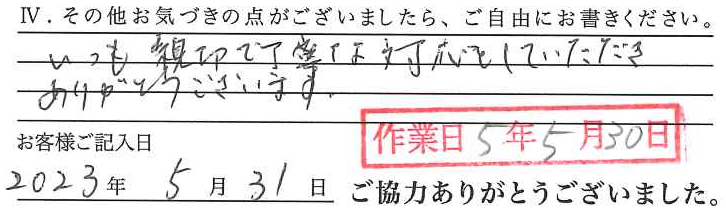 Ⅳ．その他お気づきの点がございましたら、ご自由にお書きください。
いつも親切で丁寧な対応をしていただき
ありがとうございます。
お客様ご記入日
作業日 5年5月30日
2023年 5月31日
ご協力ありがとうございました。